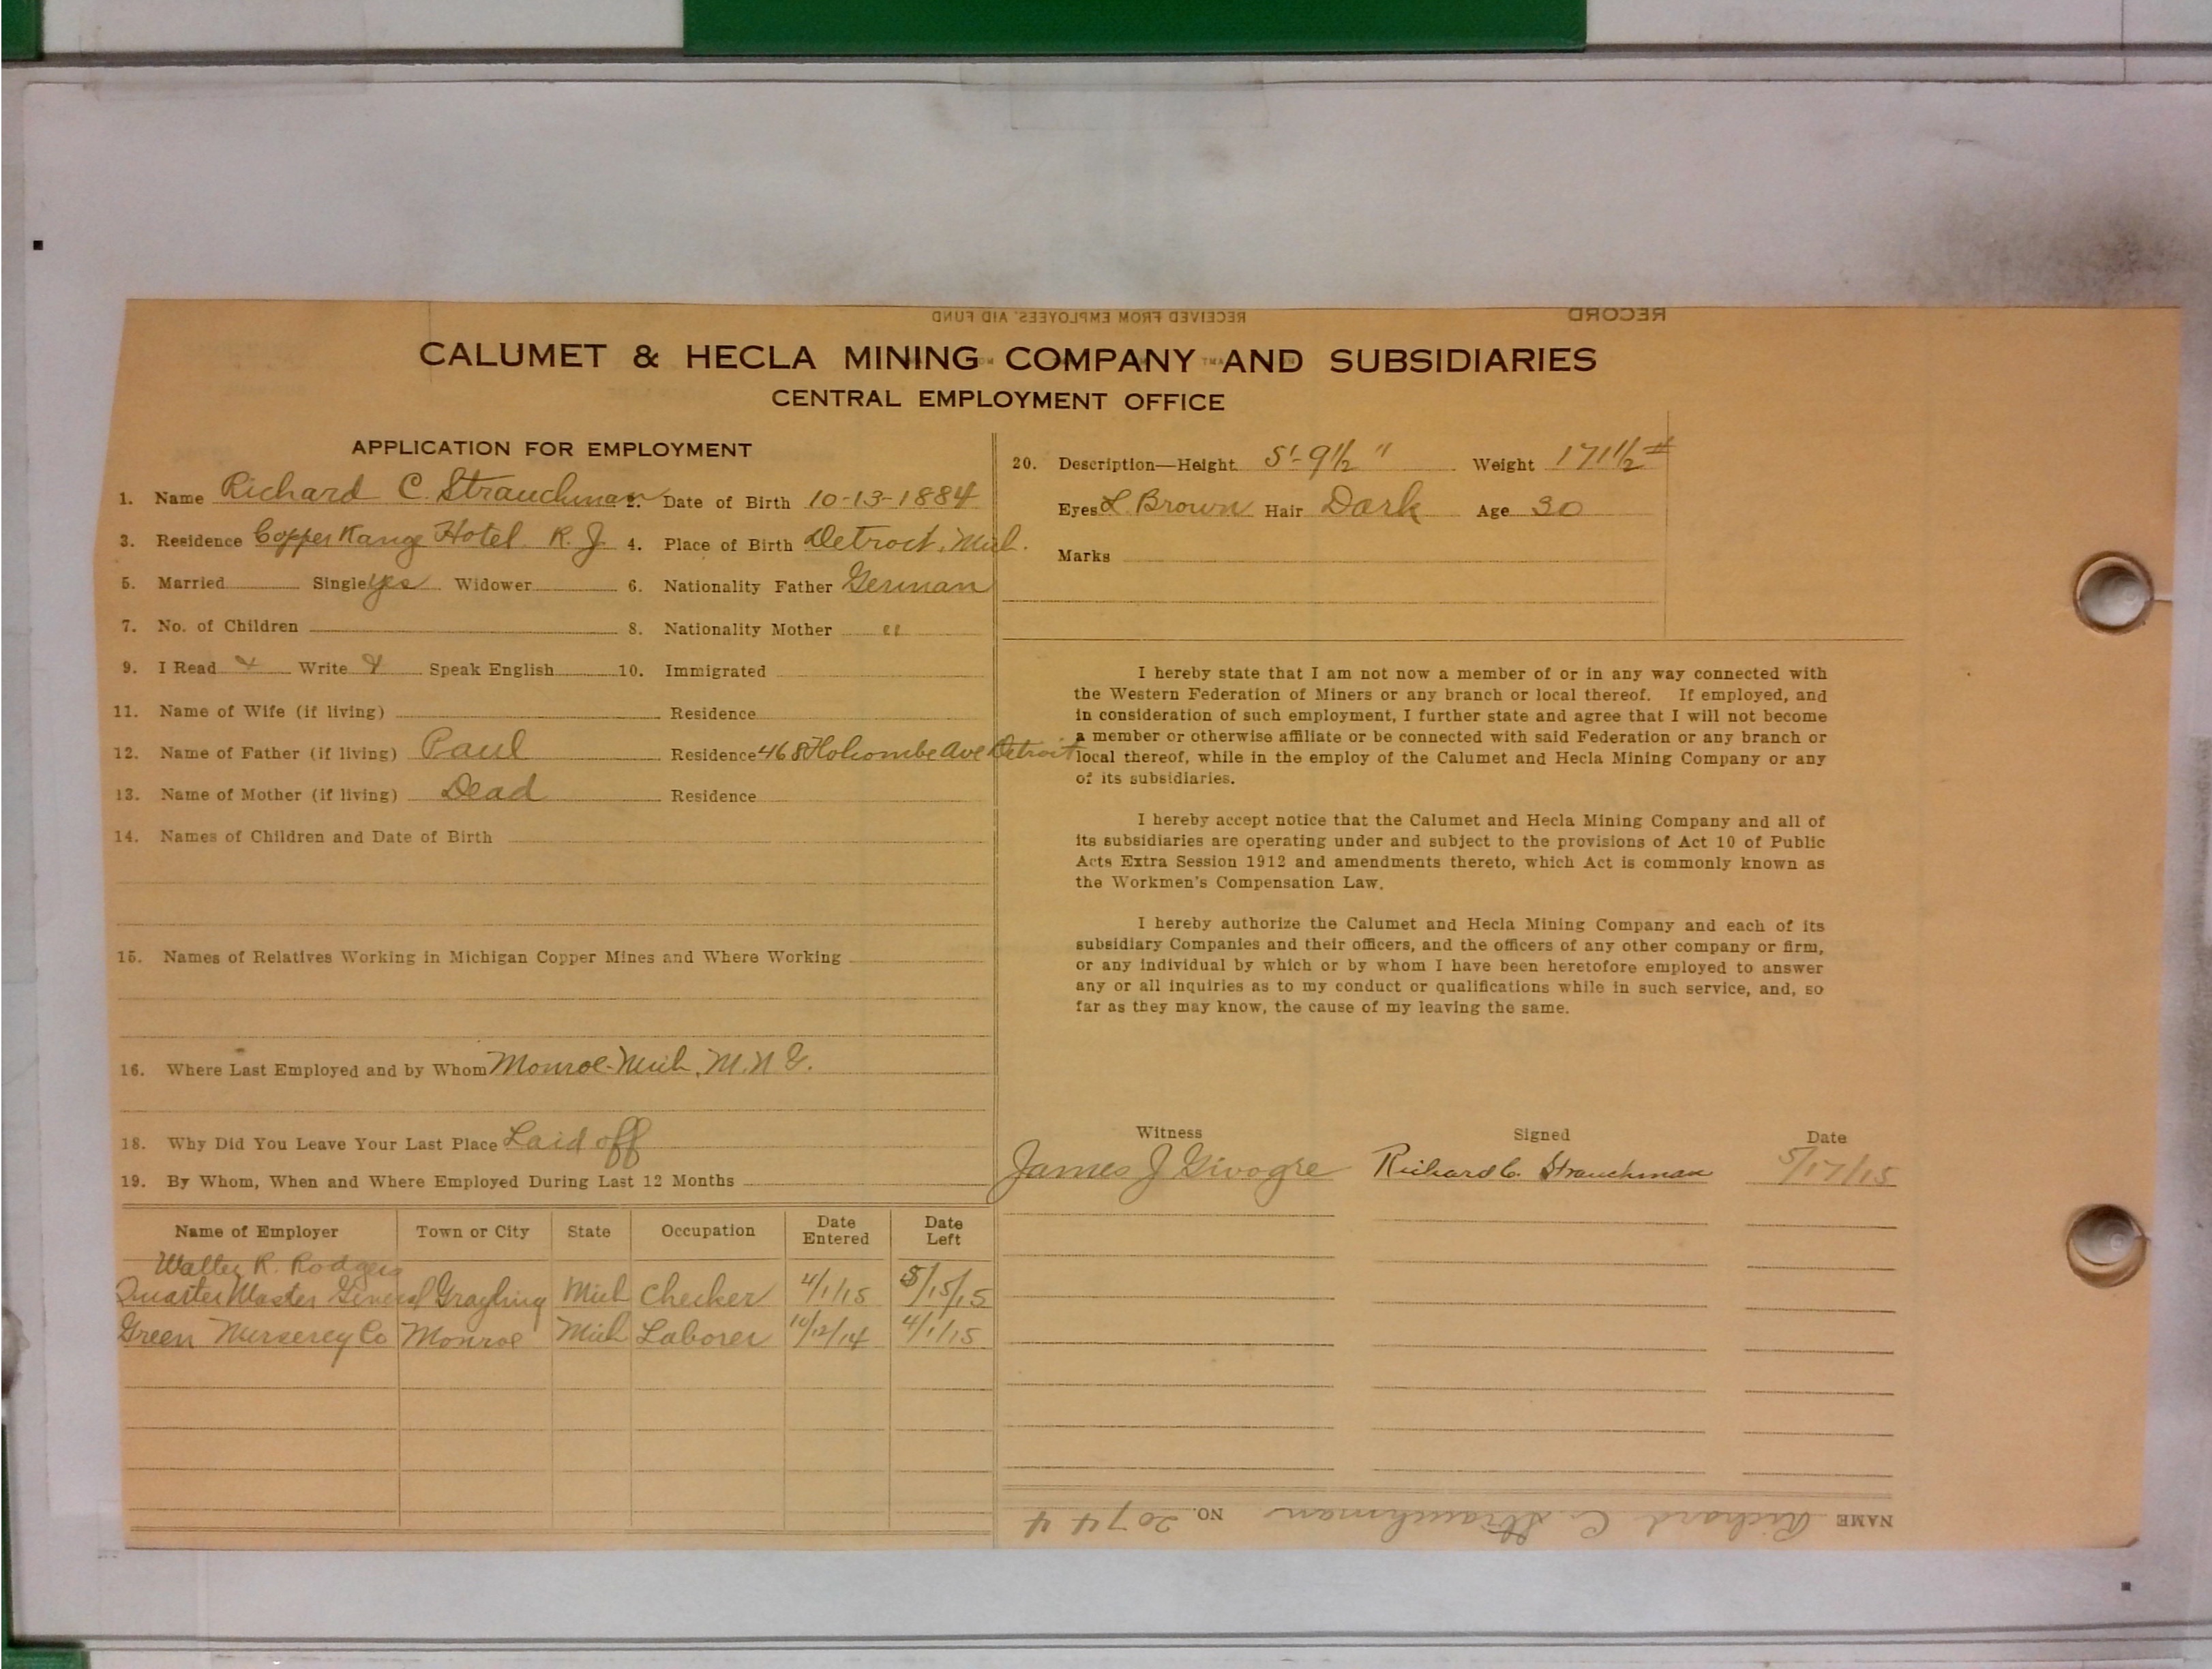 RECEIVED FROM EMPLOYEES' AID FUND
RECORD
CALUMET & HECLA MINING COMPANY AND SUBSIDIARIES
CENTRAL EMPLOYMENT OFFICE
APPLICATION FOR EMPLOYMENT
1. Name Richard C. Strauchman 2. Date of Birth 10-13-1884
3. Residence Copper Range Hotel R. J. 4. Place of Birth Detroit, Mich.
5. Married Single yes Widower 6. Nationality Father German
7. No. of Children 8. Nationality Mother "
9. I Read Write Speak English 10. Immigrated
11. Name of Wife (if living) Residence
12. Name of Father (if living) Paul Residence 468 Holcombe Ave Detroit
13. Name of Mother (if living) Dead Residence
14. Names of Children and Date of Birth
15. Names of Relatives Working in Michigan Copper Mines and Where Working
16. Where Last Employed and by Whom Monroe-Mich, M.N.G.
18. Why Did You Leave Your Last Place Laid off
19. By Whom, When and Where Employed During Last 12 Months
Name of Employer Town or City State Occupation Date Entered Date Left
Walter R. Rodgers
Quarter Master General Grayling Mich Checker 4/1/15 5/15/15
Green Nurserey Co Monroe Mich Laborer 10/12/14 4/1/15
20. Description—Height 5'-9 1/2" Weight 171 1/2 #
Eyes L. Brown Hair Dark Age 30
Marks
I hereby state that I am not now a member of or in any way connected with
the Western Federation of Miners or any branch or local thereof. If employed, and
in consideration of such employment, I further state and agree that I will not become
a member or otherwise affiliate or be connected with said Federation or any branch or
local thereof, while in the employ of the Calumet and Hecla Mining Company or any
of its subsidiaries.
I hereby accept notice that the Calumet and Hecla Mining Company and all of
its subsidiaries are operating under and subject to the provisions of Act 10 of Public
Acts Extra Session 1912 and amendments thereto, which Act is commonly known as
the Workmen's Compensation Law.
I hereby authorize the Calumet and Hecla Mining Company and each of its
subsidiary Companies and their officers, and the officers of any other company or firm,
or any individual by which or by whom I have been heretofore employed to answer
any or all inquiries as to my conduct or qualifications while in such service, and, so
far as they may know, the cause of my leaving the same.
Witness Signed Date
James J Givogre Richard C. Strauchman 5/17/15
NAME Richard C. Strauchman NO. 20744